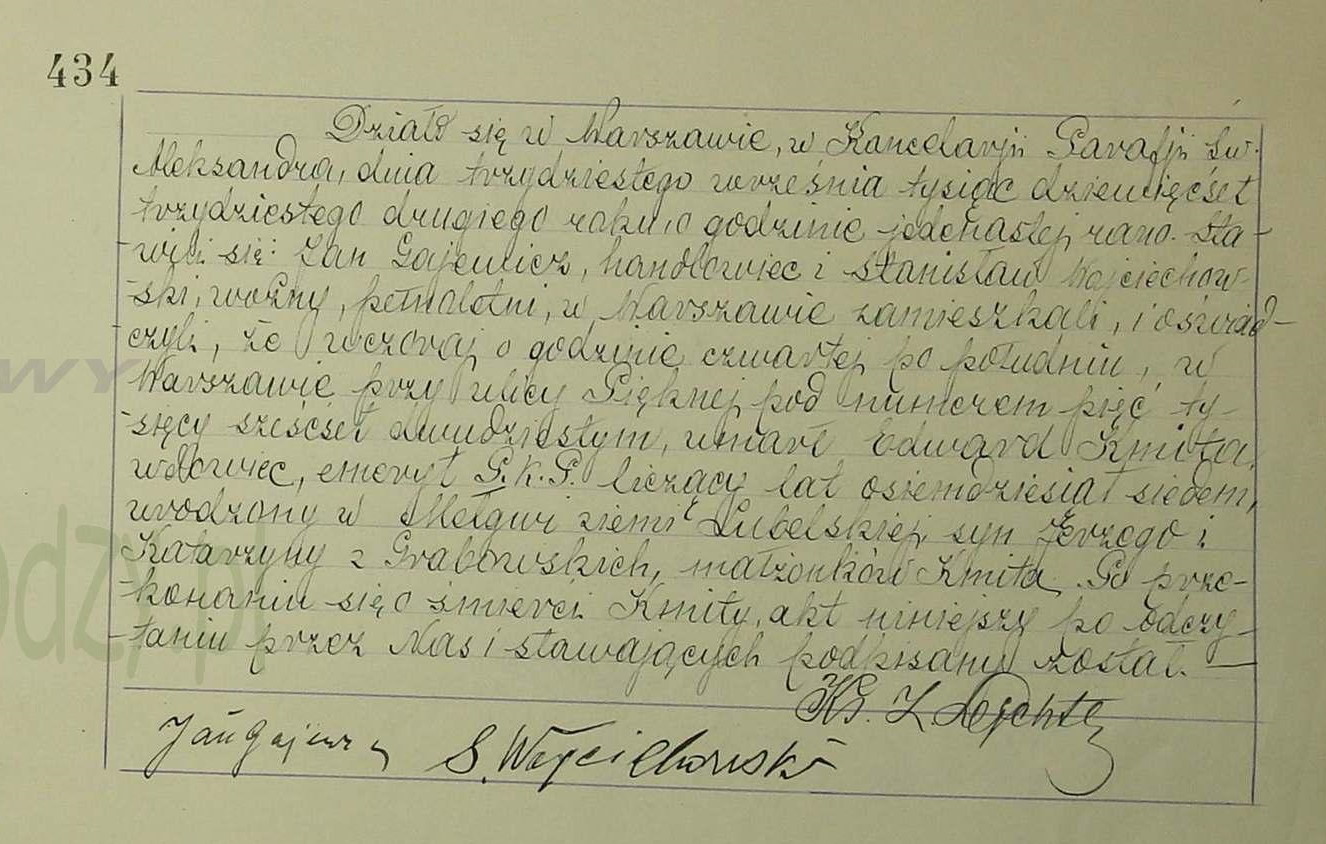 434
Działo się w Warszawie, w Kancelarji Parafji Św.
Aleksandra, dnia trzydziestego września tysiąc dziewięćset
trzydziestego drugiego roku o godzinie jedenastej rano. Sta-
wili się: Jan Gajewicz, handlowiec i Stanisław Wojciechow-
-ski, woźny, pełnoletni, w Warszawie zamieszkali, i oświad-
czyli, że wczoraj o godzinie czwartej po południu, w
Warszawie przy ulicy Pięknej pod numerem pięć ty-
-sięcy sześćset dwudziestym, umarł Edward Kmita,
wdowiec, emeryt P.K.P. liczący lat osiemdziesiąt siedem,
urodzony w Mełgwi ziemi Lubelskiej syn Jerzego i
Katarzyny z Grabowskich, małżonków Kmita. Po prze-
-konaniu się o śmierci Kmity, akt niniejszy po odczy-
-taniu przez Nas i stawających podpisany został. —
Ks. Z
Jan S. Wojciechowski
WY
odzy.pl